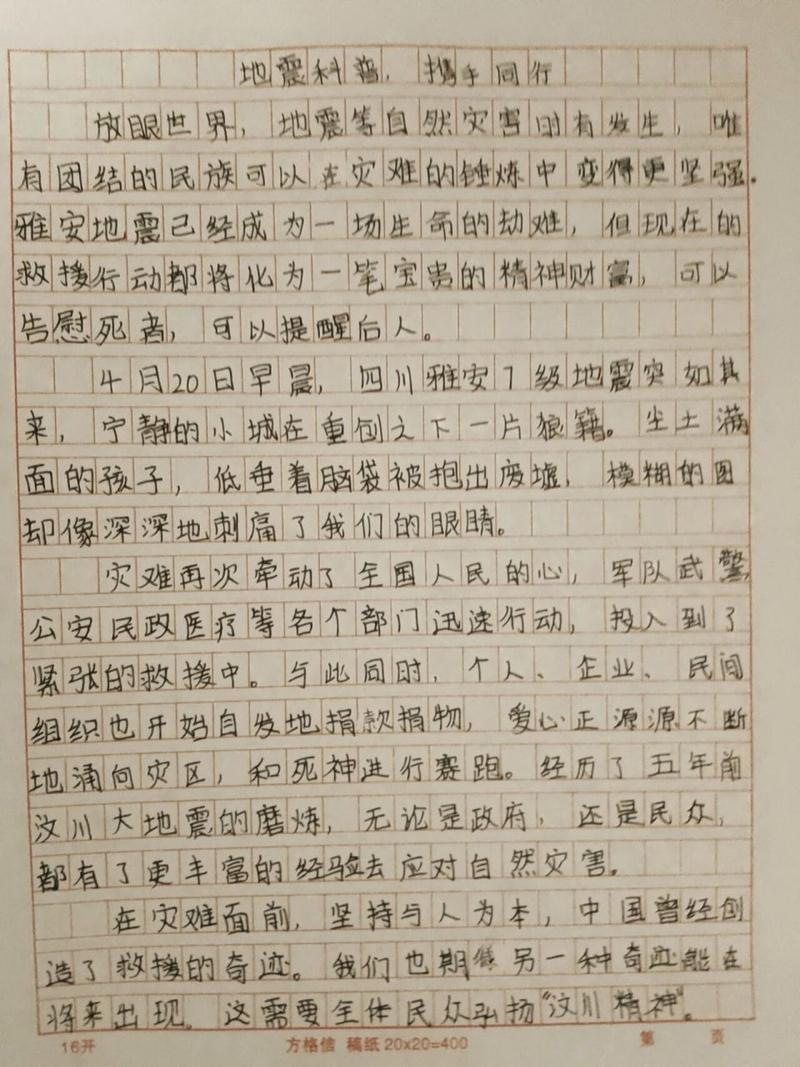 地震科普，携手同行
放眼世界，地震等自然灾害时有发生，唯
有团结的民族可以在灾难的锤炼中变得更坚强.
雅安地震已经成为一场生命的劫难，但现在的
救援行动都将化为一笔宝贵的精神财富，可以
告慰死者，可以提醒后人。
4月20日早晨，四川雅安7级地震突如其
来，宁静的小城在重创之下一片狼籍。尘土满
面的孩子，低垂着脑袋被抱出废墟，模糊的图
却像深深地刺痛了我们的眼睛。
灾难再次牵动了全国人民的心，军队武警
公安民政医疗等各个部门迅速行动，投入到了
紧张的救援中。与此同时，个人、企业、民间
组织也开始自发地捐款捐物，爱心正源源不断
地涌向灾区，和死神进行赛跑。经历了五年前
汶川大地震的磨炼，无论是政府，还是民众，
都有了更丰富的经验去应对自然灾害。
在灾难面前，坚持与人为本，中国曾经创
造了救援的奇迹。我们也期待另一种奇迹能在
将来出现。这需要全体民众弘扬“汶川精神”。
16开 方格信 稿纸 20x20=400 第 页